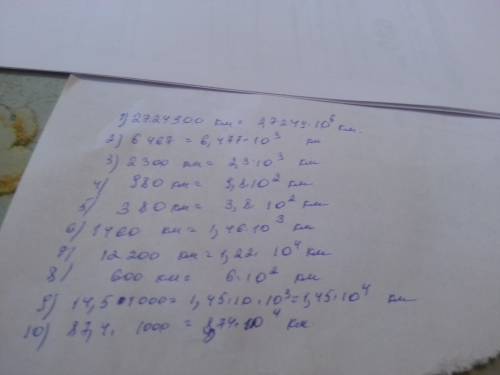 1) 2724900 км = 2,7249·10⁶ км.
2) 6467 = 6,477·10³ км
3) 2300 км = 2,3·10³ км
4) 980 км = 9,8·10² км
5) 380 км = 3,8·10² км
6) 1460 км = 1,46·10³
7) 12 200 км = 1,22·10⁴ км
8) 600 км = 6·10² км
9) 14,5·1000 = 1,45·10·10³ = 1,45·10⁴ км
10) 87,4·1000 = 8,74·10⁴ км